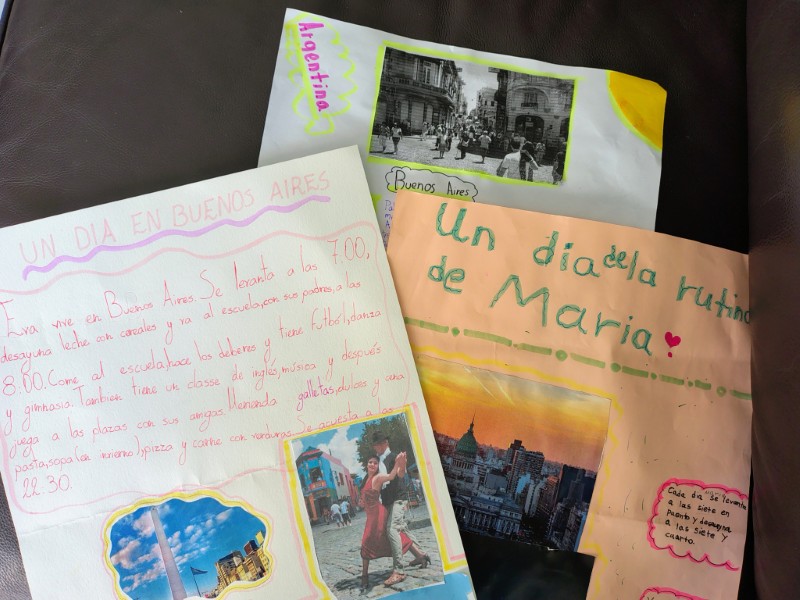 Argentina
Buenos Aires
UN DIA EN BUENOS AIRES
Eva vive en Buenos Aires. Se levanta a las 7.00,
desayuna leche con cereales y va al escuela,con sus padres,a las
8.00.Come al escuela,hace los deberes y tiene futbol,danza
y gimnasia. Tambien tiene un classe de inglés,música y después
juega a las plazas con sus amigas. Merienda galletas,dulces y cena
pasta,sopa(en invierno),pizza y carne con verduras.Se acuesta a las
22.30.
Un dia de la rutina
de Maria
Cada dia se levanta
a las siete en
punto y desayuna
a las siete y
cuarto.